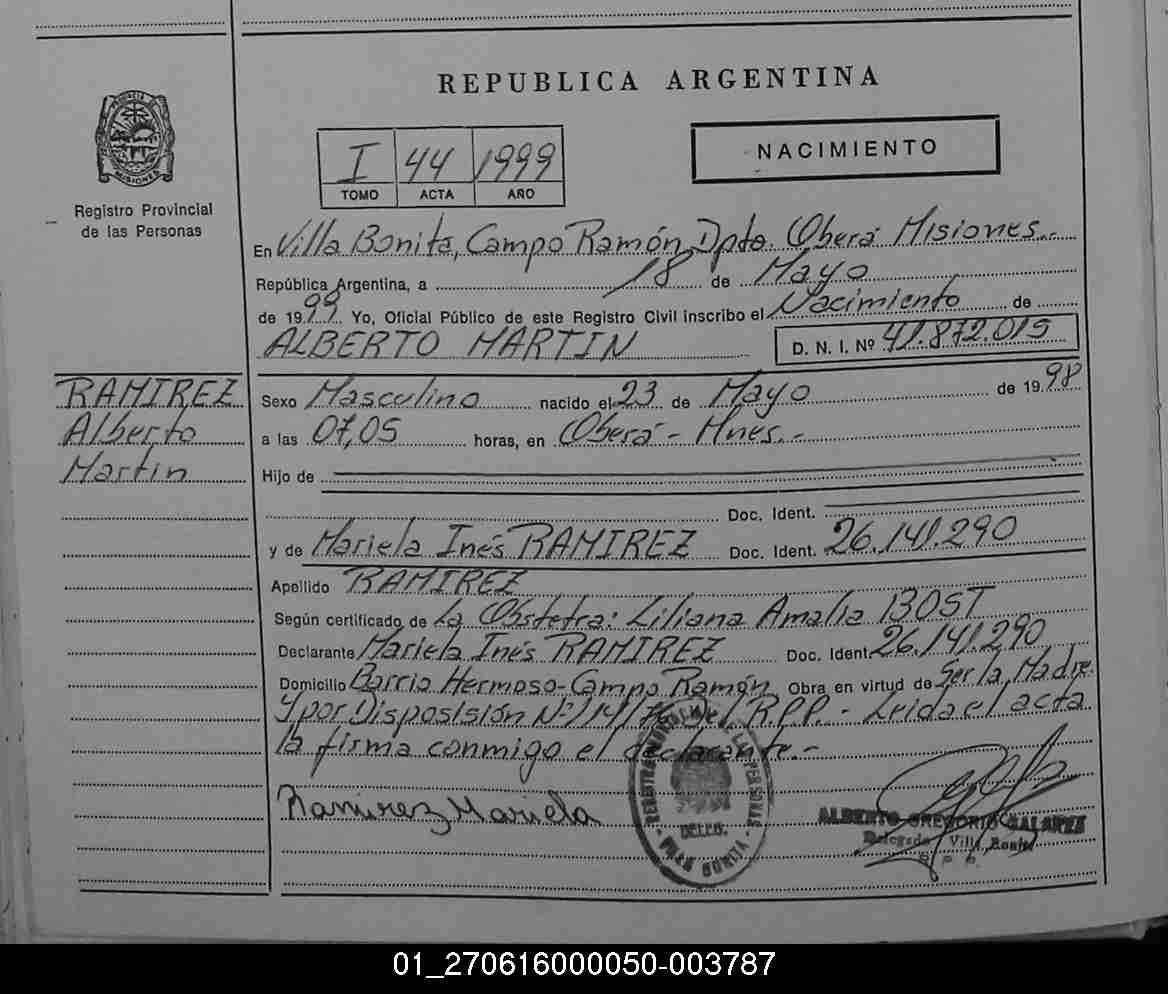 REPUBLICA ARGENTINA
PROVINCIA DE
MISIONES
Registro Provincial
de las Personas
I 44 1999
TOMO ACTA AÑO
NACIMIENTO
En Villa Bonita, Campo Ramón, Dpto. Oberá Misiones.-
República Argentina, a 18 de Mayo
de 1999 Yo, Oficial Público de este Registro Civil inscribo el Nacimiento de
ALBERTO MARTIN D. N. I. Nº 41.872.015
RAMIREZ
Alberto
Martin
Sexo Masculino nacido el 23 de Mayo de 1998
a las 07,05 horas, en Oberá - Mnes.-
Hijo de
Doc. Ident.
y de Mariela Inés RAMIREZ Doc. Ident. 26.141.290
Apellido RAMIREZ
Según certificado de La Obstetra: Liliana Amalia BOST
Declarante Mariela Inés RAMIREZ Doc. Ident. 26.141.290
Domicilio Barrio Hermoso-Campo Ramón Obra en virtud de Ser la Madre.
Y por Disposisión Nº del R.P.P.- Leida el acta
la firma conmigo el declarante.-
Ramirez Mariela
DE LAS PERSONAS
DELEG.
VILLA BONITA
ALBERTO GREGORIO
Delegado Villa Bonita
01_270616000050-003787